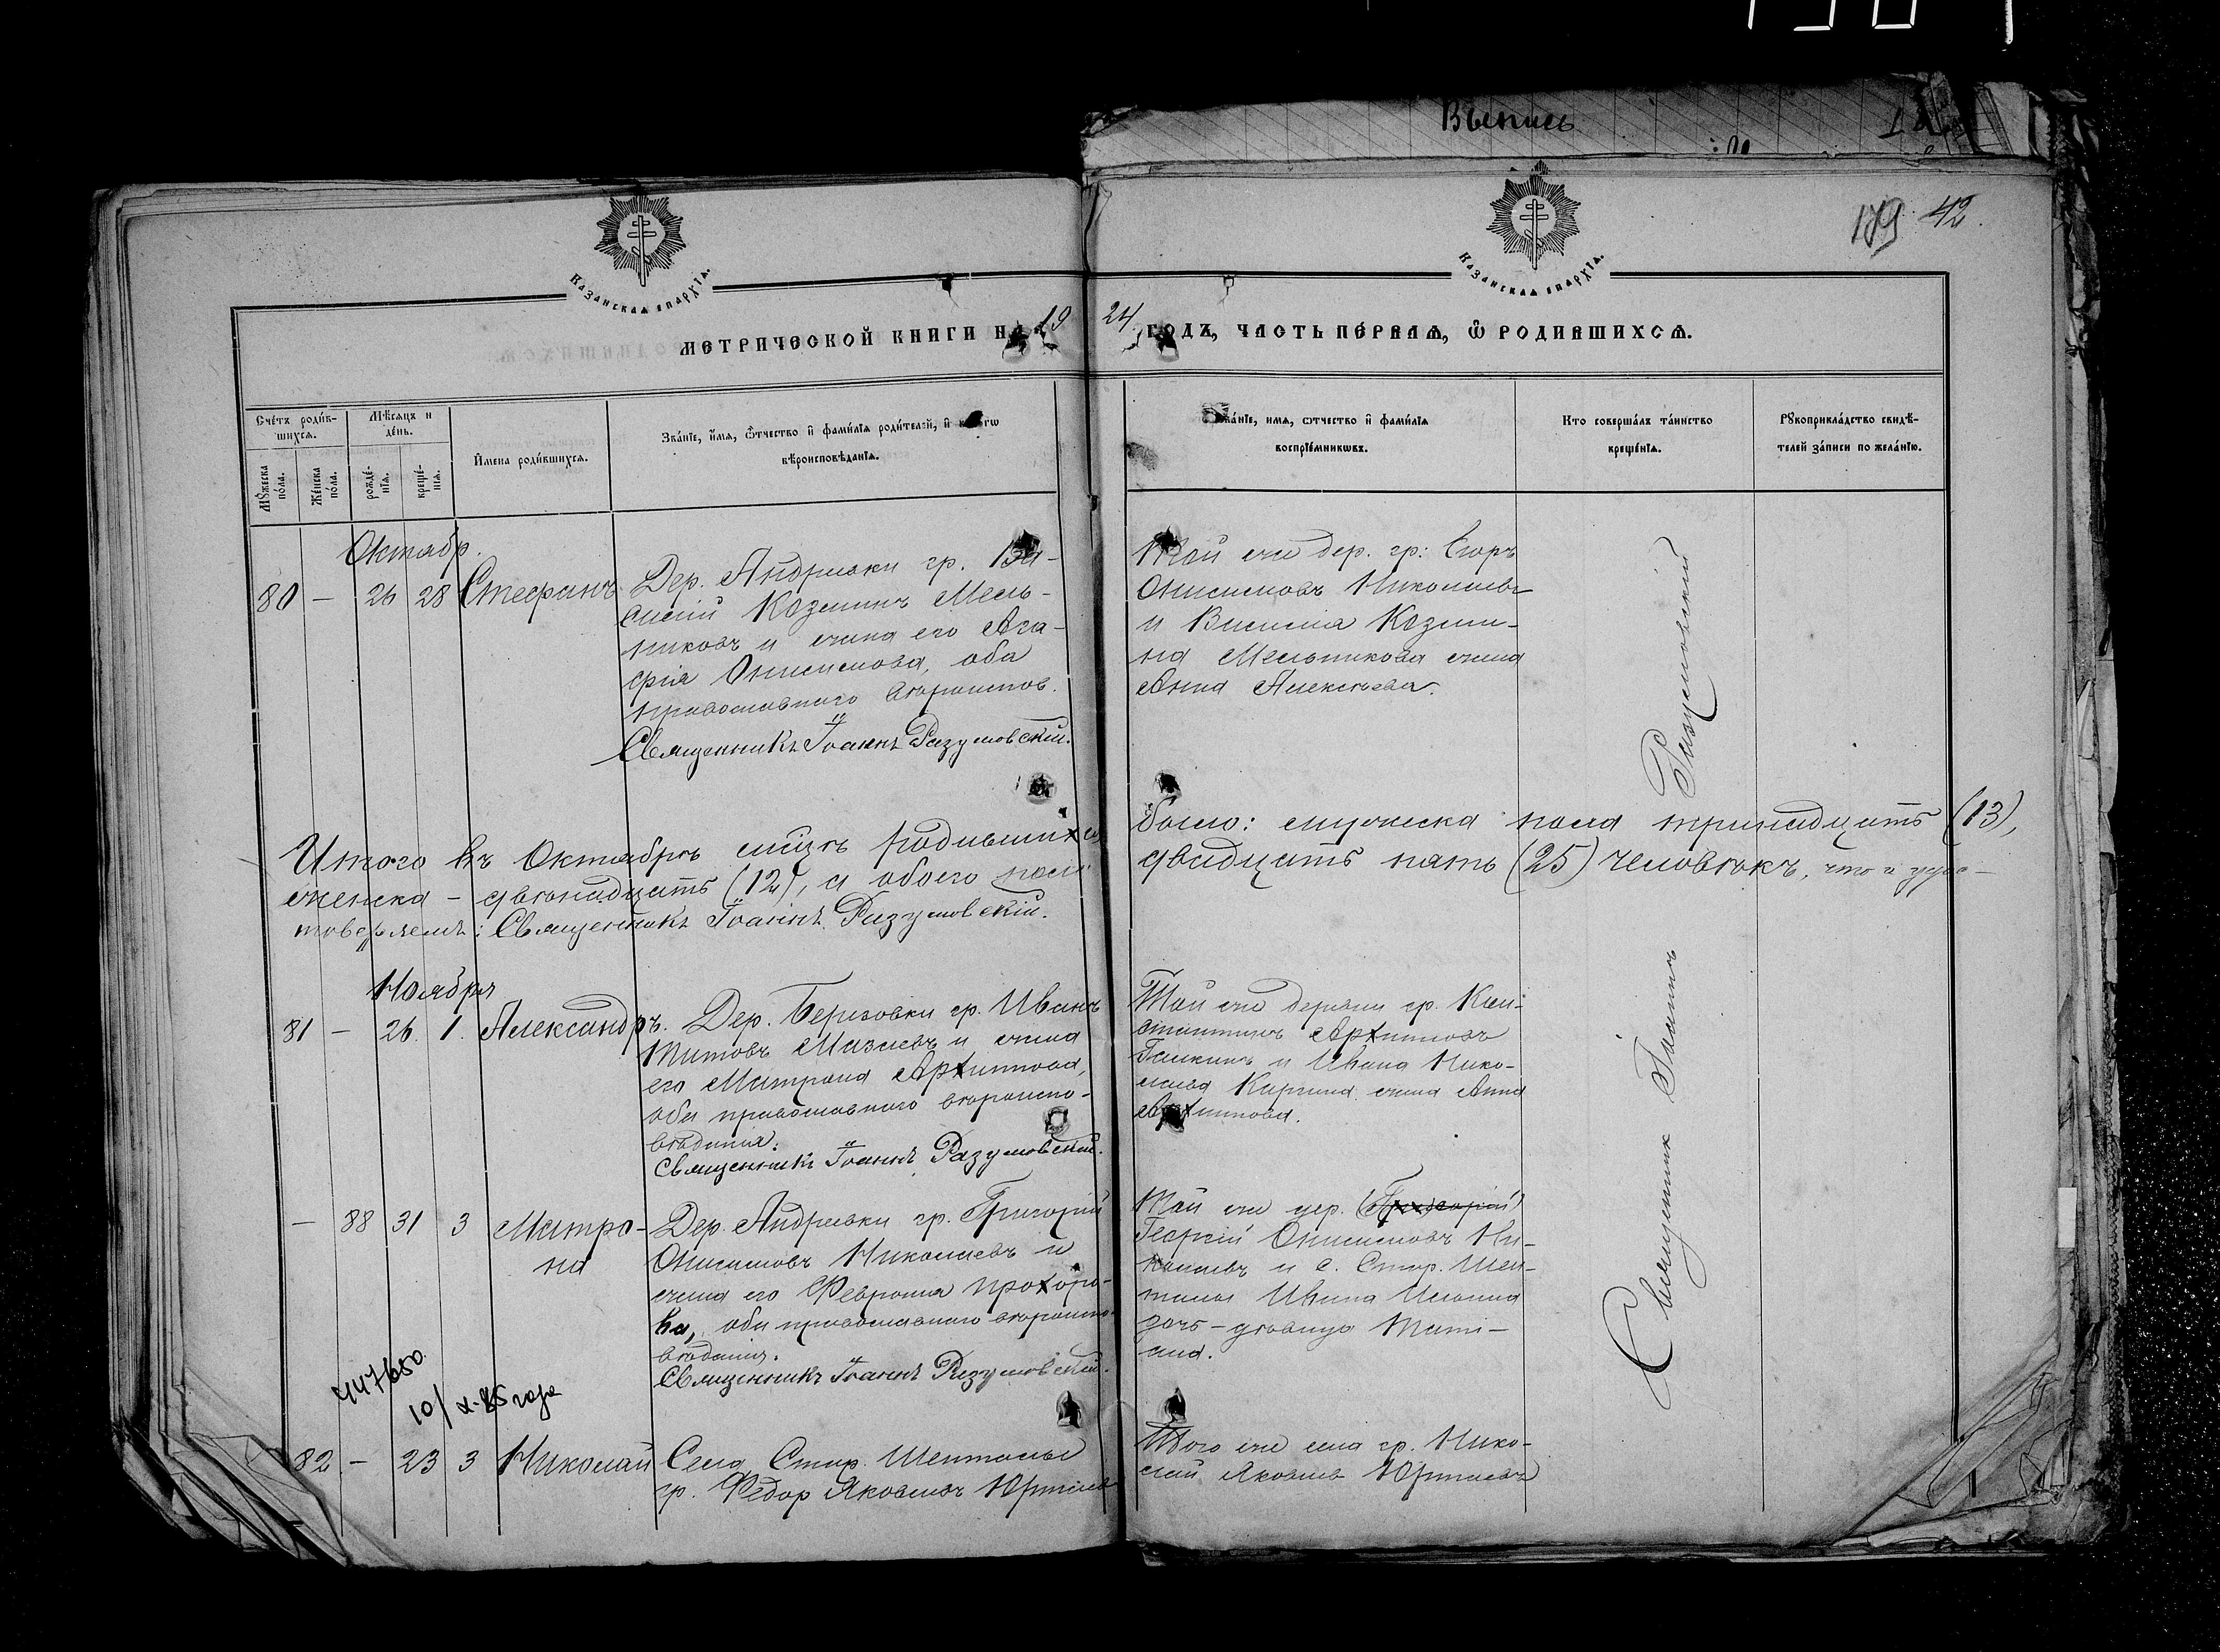 Выпись
179 42.
Казанская епархїѧ.
Казанская епархїѧ.
МЕТРИЧЕСКОЙ КНИГИ НА 1924 ГОДЪ, ЧАСТЬ ПЕРВАѦ, Ѽ РОДИВШИХСѦ.
Счетъ родив-
шихсѧ.
Мѣсѧцъ и
день.
Мꙋжеска
пола.
Женска
пола.
рожде-
нїѧ.
креще-
нїѧ.
Имена родившихсѧ.
Званїе, имѧ, ѿчество и фамилїѧ родителей, и
вѣроисповѣданїѧ.
Званїе, имѧ, ѿчество и фамилїѧ
воспрїемниковъ.
Кто совершалъ таинство
крещенїѧ.
Рꙋкоприкладство свидѣ-
телей записи по желанїю.
Октябр.
80 — 26 28 Стефанъ
Дер. Андреевки гр. Ва-
силій Козминъ Мель-
никовъ и жена его Ага-
фія Онисимова, оба
православнаго вѣроиспов.
Священникъ Іоаннъ Разумовскій.
Той же дер. гр: Егоръ
Онисимовъ Николаевъ
и Василія Козми-
на Мельникова жена
Анна Алексѣева.
Итого въ Октябрѣ мѣсяцѣ родившихся было: мужеска пола тринадцать (13),
женска – двѣнадцать (12), а обоего пола двадцать пять (25) человѣкъ, что и удос-
товѣряемъ: Священникъ Іоаннъ Разумовскій.
Ноября
81 — 26 1. Александръ.
Дер. Березовки гр. Иванъ
Титовъ Мазаевъ и жена
его Матрона Архиппова,
оба православнаго вѣроиспо-
вѣданія.
Священникъ Іоаннъ Разумовскій.
Той же деревни гр. Кон-
стантинъ Архипповъ
Галкинъ и Ивана Нико-
лаева Каргина жена Анна
Архиппова.
— 88 31 3 Матро-
на
Дер. Андреевки гр. Григорій
Онисимовъ Николаевъ и
жена его Феврония Прохоро-
ва, оба православнаго вѣроиспо-
вѣданія.
Священникъ Іоаннъ Разумовскій.
Той же дер. (Григорій)
Георгій Онисимовъ Ни-
колаевъ и с. Стар. Шен-
талы Ивана Ильина
дочь – дѣвица Тати-
ана.
447650
10/X-85 года
82 — 23 3 Николай
Села Стар. Шенталы
гр. Федор Яковлевъ Юртаевъ
Того же села гр. Нико-
лай Яковлев Юртаевъ
Священник Іоаннъ Разумовский